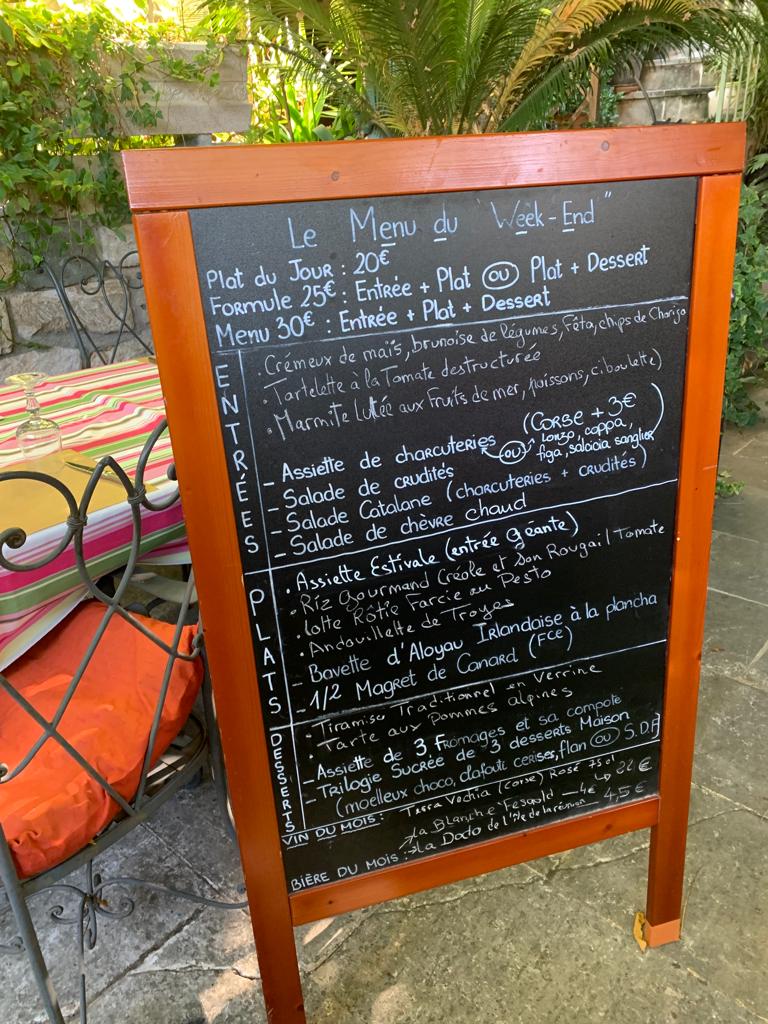 Le Menu du "Week-End"
Plat du Jour : 20€
Formule 25€ : Entrée + Plat (OU) Plat + Dessert
Menu 30€ : Entrée + Plat + Dessert
ENTRÉES
. Crémeux de maïs, brunoise de légumes, Fêta, chips de Chorizo
. Tartelette à la Tomate destructurée
. Marmite lutée aux Fruits de mer, poissons, ciboulette)
- Assiette de charcuteries (OU) (Corse + 3€
lonzo, coppa,
figa, salcicia sanglier)
- Salade de crudités
- Salade Catalane (charcuteries + crudités)
- Salade de chèvre chaud
PLATS
. Assiette Estivale (entrée géante)
. Riz Gourmand Créole et son Rougail Tomate
. Lotte Rôtie Farcie au Pesto
. Andouillette de Troyes
- Bavette d'Aloyau Irlandaise à la plancha
- 1/2 Magret de Canard (Fce)
DESSERTS
. Tiramisu Traditionnel en Verrine
. Tarte aux Pommes alpines
- Assiette de 3 fromages et sa compote
- Trilogie Sucrée de 3 desserts Maison
(moelleux choco, clafouti cerises, flan (OU) S.D.F)
VIN DU MOIS : Terra Vechia (corse) Rosé 75cl
↳ 22€
BIÈRE DU MOIS : → La Blanche — 4€
→ La Dodo de l'île de la réunion 4,5€